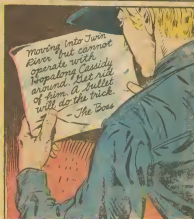 Moving into Twin
River but cannot
operate with
Hopalong Cassidy
around. Get rid
of him. A bullet
will do the trick.
- The Boss